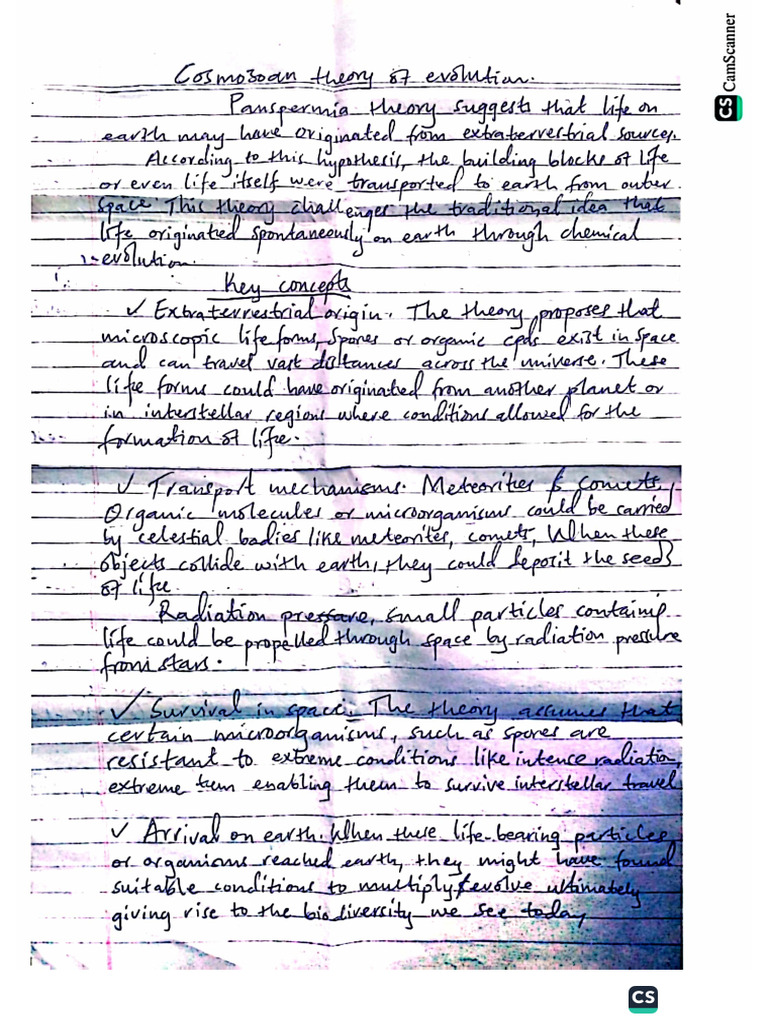 Cosmozoan theory of evolution.
Panspermia theory suggests that life on
earth may have originated from extraterrestrial sources.
According to this hypothesis, the building blocks of life
or even life itself were transported to earth from outer
space. This theory challenges the traditional idea that
life originatied spontaneously on earth through chemical
evolution.
Key concepts
✓ Extraterrestrial origin. The theory proposes that
microscopic life forms, spores or organic cpds exist in space
and can travel vast distances across the universe. These
life forms could have originated from another planet or
in interstellar regions where conditions allowed for the
formation of life.
✓ Transport mechanisms. Meteorites & comets,
Organic molecules or microorganisms could be carried
by celestial badies like meteorites, comets, When these
objects collide with earth, they could deposit the seeds
of life.
Radiation pressure, small particles containing
life could be propelled through space by radiation pressure
from stars.
✓ Survival in space. The theory assumes that
certain microorganisms, such as spores are
resistant to extreme conditions like intense radiation,
extreme tem enabling them to survive interstellar travel
✓ Arrival on earth. When these life-bearing particles
or organisms reached earth, they might have found
suitable conditions to multiply & evolve ultimately
giving rise to the biodiversity we see today
CS CamScanner
CS